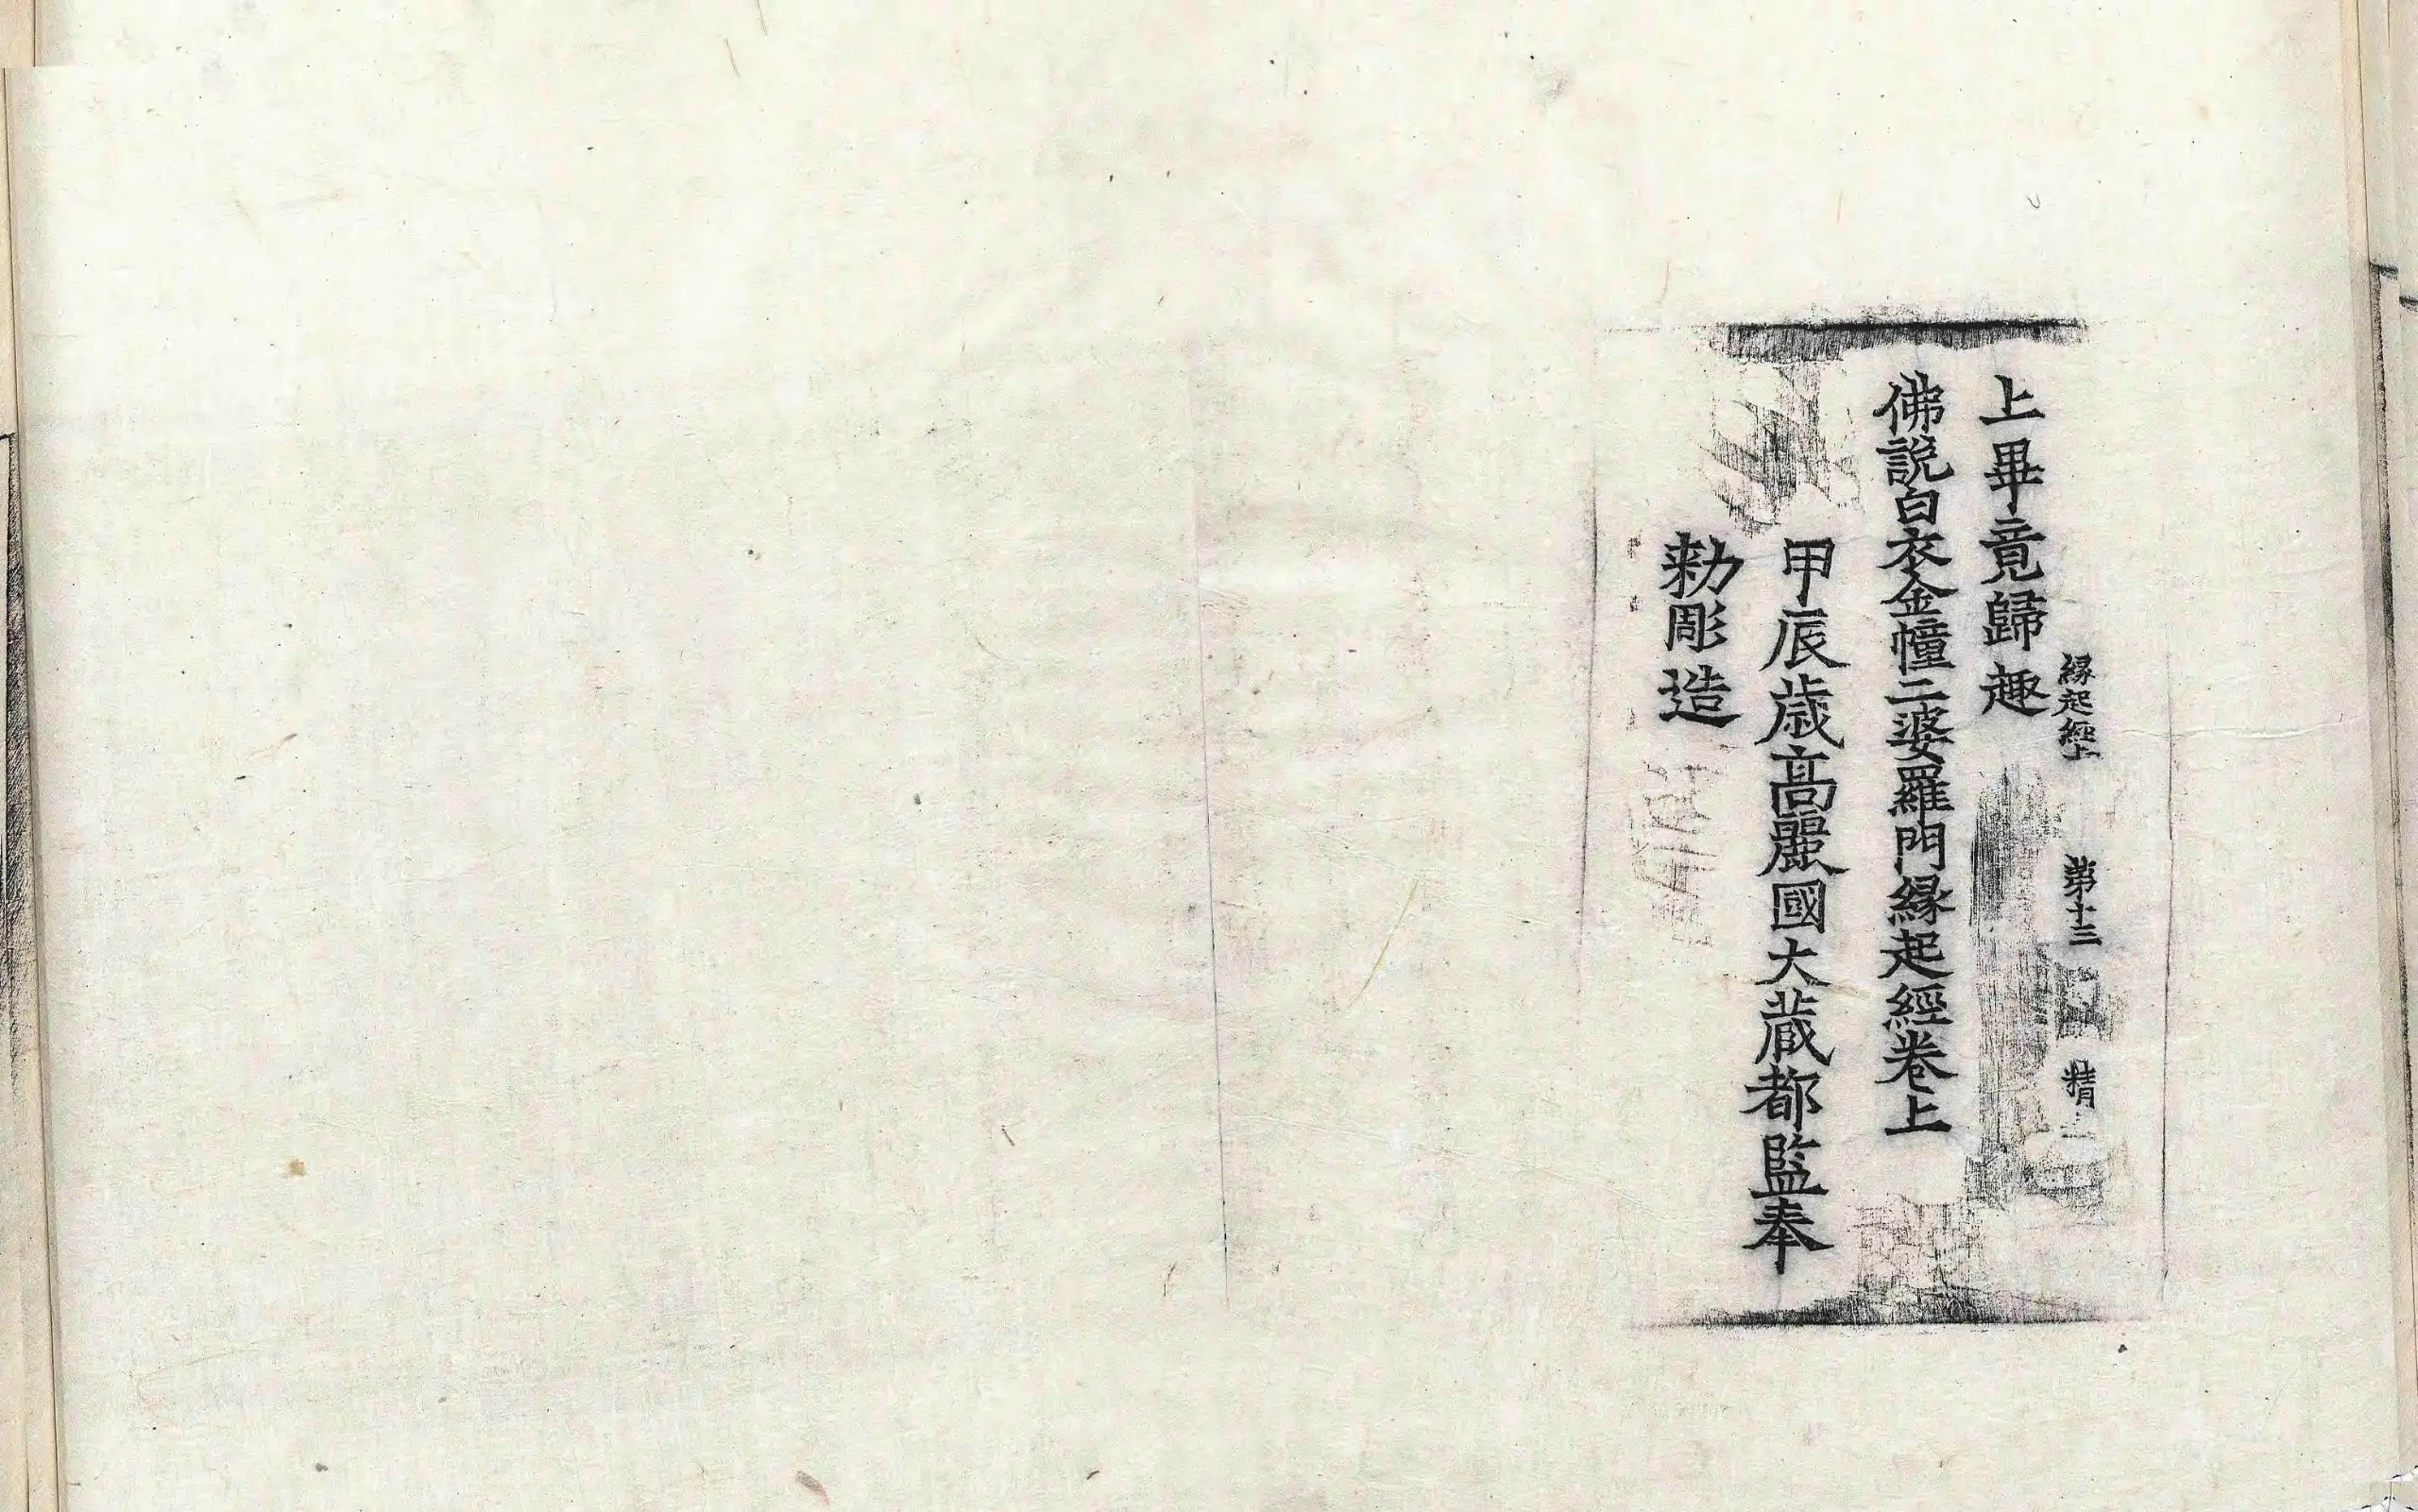 縁起經上 第十三 精
上畢竟歸趣
佛說白衣金幢二婆羅門縁起經卷上
甲辰歲高麗國大藏都監奉
勅彫造